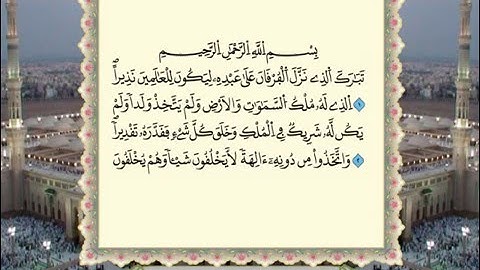 بِسْمِ اللَّهِ الرَّحْمَٰنِ الرَّحِيمِ
تَبَٰرَكَ الذِے نَزَّلَ الْفُرْقَانَ عَلَىٰ عَبْدِهِۦ لِيَكُونَ لِلْعَٰلَمِينَ نَذِيراًۖ
١ الذِے لَهُۥ مُلْكُ السَّمَٰوَٰتِ وَالَارْضِ وَلَمْ يَتَّخِذْ وَلَداً وَلَمْ
يَكُن لَّهُۥ شَرِيكٌ فِے الْمُلْكِ وَخَلَقَ كُلَّ شَےْءٖ فَقَدَّرَهُۥ تَقْدِيراًۖ
٢ وَاتَّخَذُواْ مِن دُونِهِۦٓ ءَالِهَةً لَّا يَخْلُقُونَ شَيْـٔاً وَهُمْ يُخْلَقُونَ